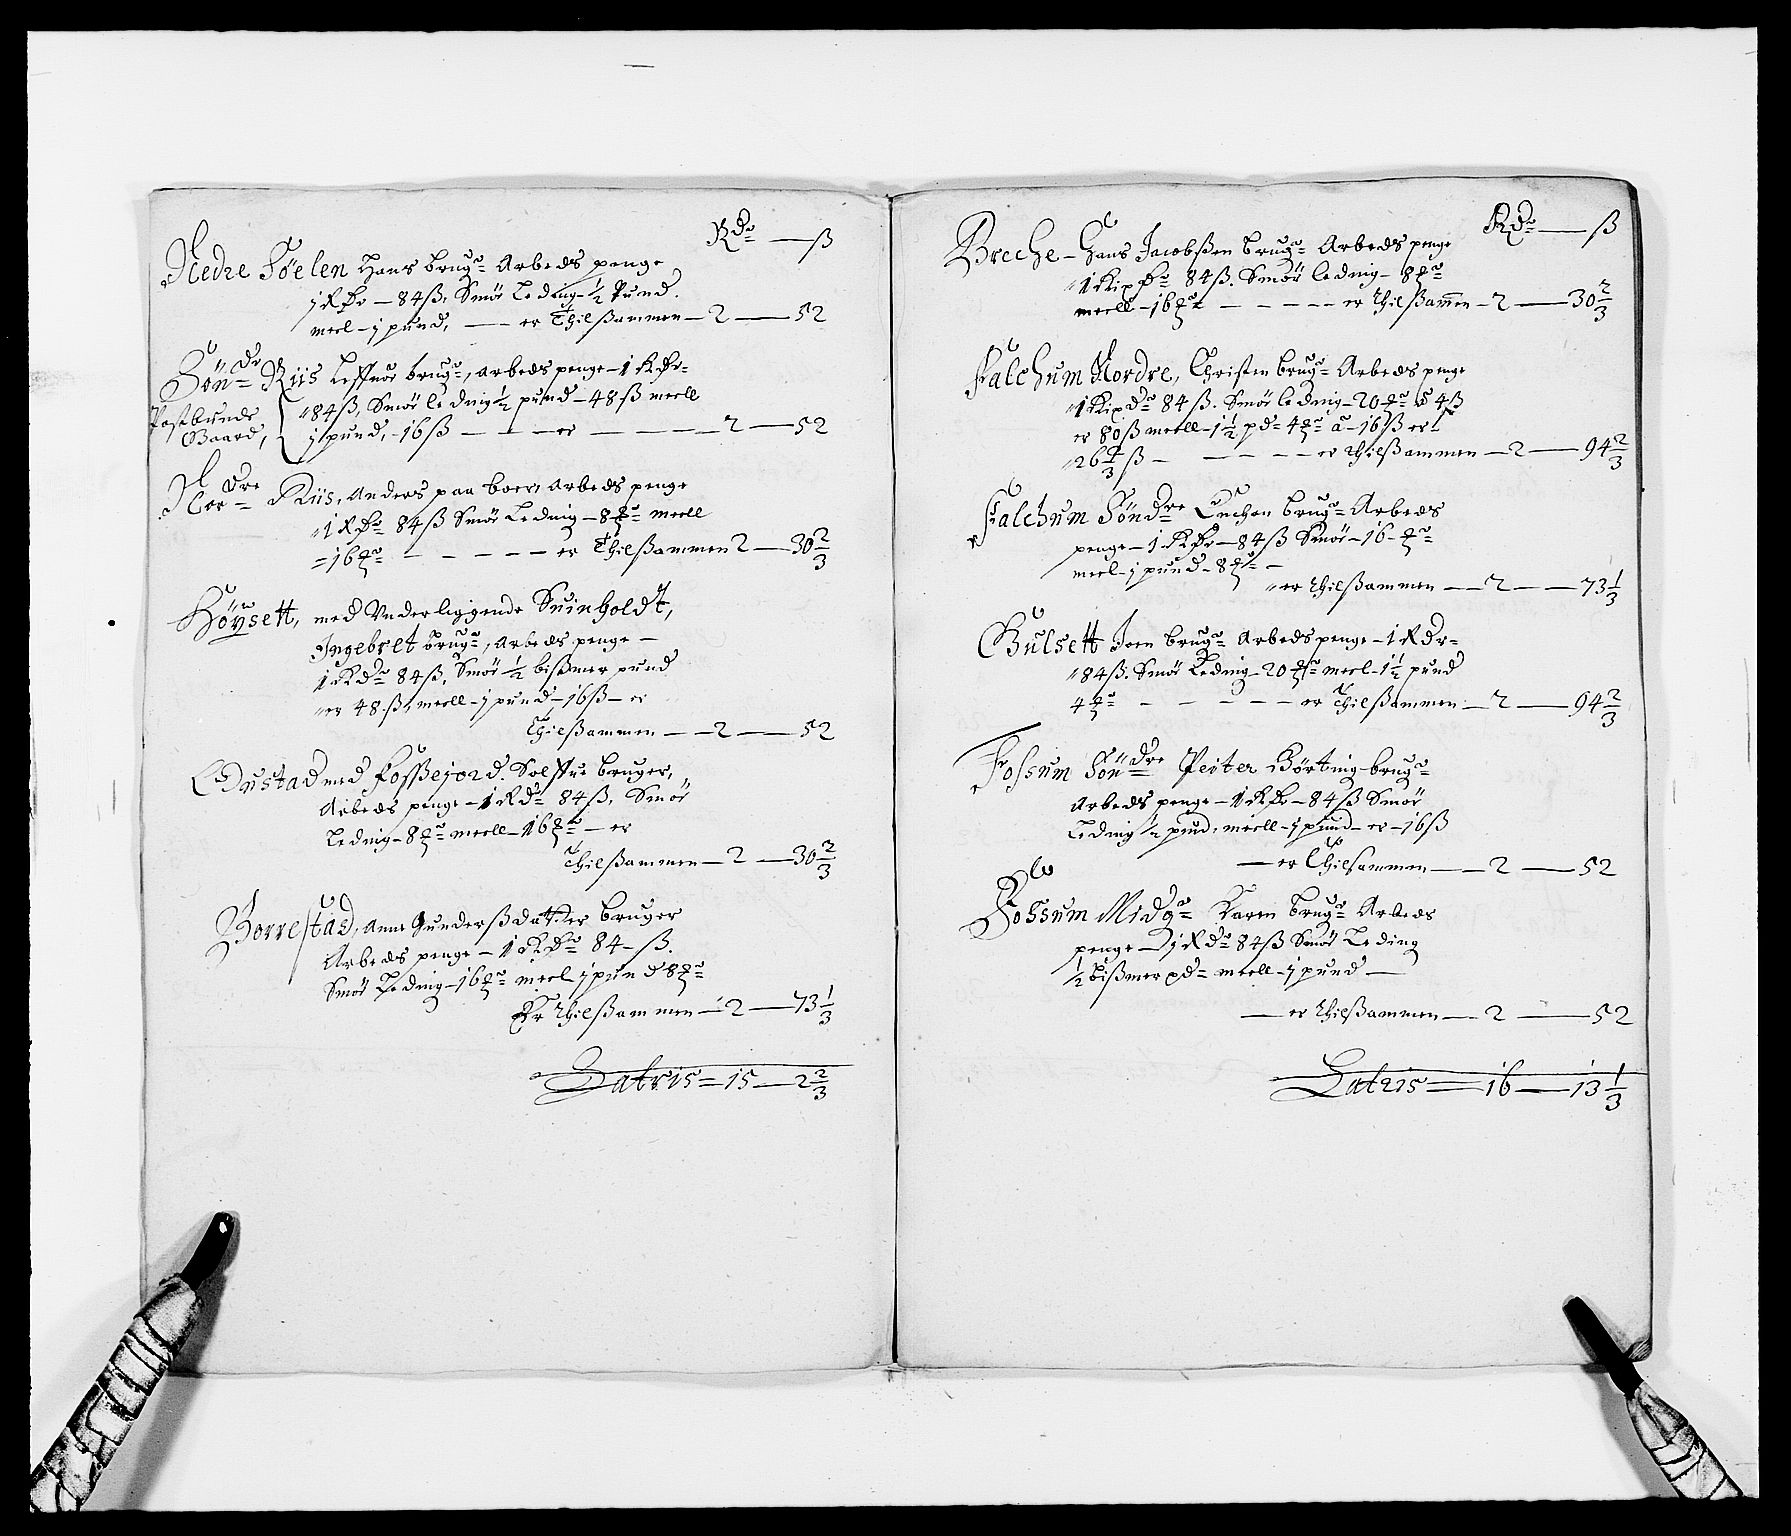 Rdr — ß
Nedre Föelen Hans brugr Arbeds penge
j Rdr — 84 ß, Smör Leding ½ Pund.
meel - j pund, — er Thilßammen — 2 — 52
Söndr Riis Leffuor brugr, arbeds penge - 1 Rdr -
Postbunde Gaard, 84 ß, Smör leding ½ pund - 48 ß meell
j pund, - 16 ß — er — 2 — 52
Nordre Riis, Anders paa boer, Arbeds penge
1 Rdr 84 ß Smör Leding - 8 meell
= 16 — er Thilßammen 2 — 30 2/3
Höysett, med Underliggende Suinholdt,
Ingebret brugr, Arbeds penge —
1 Rdr 84 ß, Smör ½ bißmer pund
er 48 ß, meell - j pund - 16 ß - er
Thilßammen — 2 — 52
med Foßßejord. Bruger,
Arbeds penge - 1 Rdr 84 ß, Smör
Leding - 8 meell - 16 — er
Thilßammen — 2 — 30 2/3
Borrestad, Anne Gunderßdatter bruger
Arbeds penge - 1 Rdr 84 - ß.
Smör Leding - 16 meel j pund 8
Er Thilßammen — 2 — 73 1/3
Latris = 15 — 2 2/3
Rdr — ß
Breche - Hans Jacobßen brugr Arbeds penge
1 Rixdr 84 ß. Smör leding - 8
meell - 16 — er Thilßamen - 2 — 30 2/3
Falchum Nordre, Christen brugr Arbeds penge
1 Rixdr 84 ß. Smör leding - 20 a 4 ß
er 80 ß meell - 1½ pd 4 a - 16 ß er
26 ß — er Thilßammen — 2 — 94 2/3
Falchum Söndre brugr Arbeds
penge - 1 Rdr - 84 ß Smör - 16
meel - j pund - 8 —
er Thilßammen — 2 — 73 1/3
Gulsett Joen brugr Arbeds penge - 1 Rdr -
84 ß. Smör Leding - 20 meel - 1½ pund
4 — er Thilßammen — 2 — 94 2/3
Fossum Söndre Peiter Börting brugr
Arbeds penge - 1 Rdr - 84 ß Smör
Leding ½ pund, meell - j pund - er - 16 ß
— er Thilsammen — 2 — 52
Fossum Midgr Karen brugr Arbeds
penge - j Rdr 84 ß Smör Leding
½ bißmer pd meell - j pund —
— er Thilßammen — 2 — 52
Latris = 16 — 13 1/3